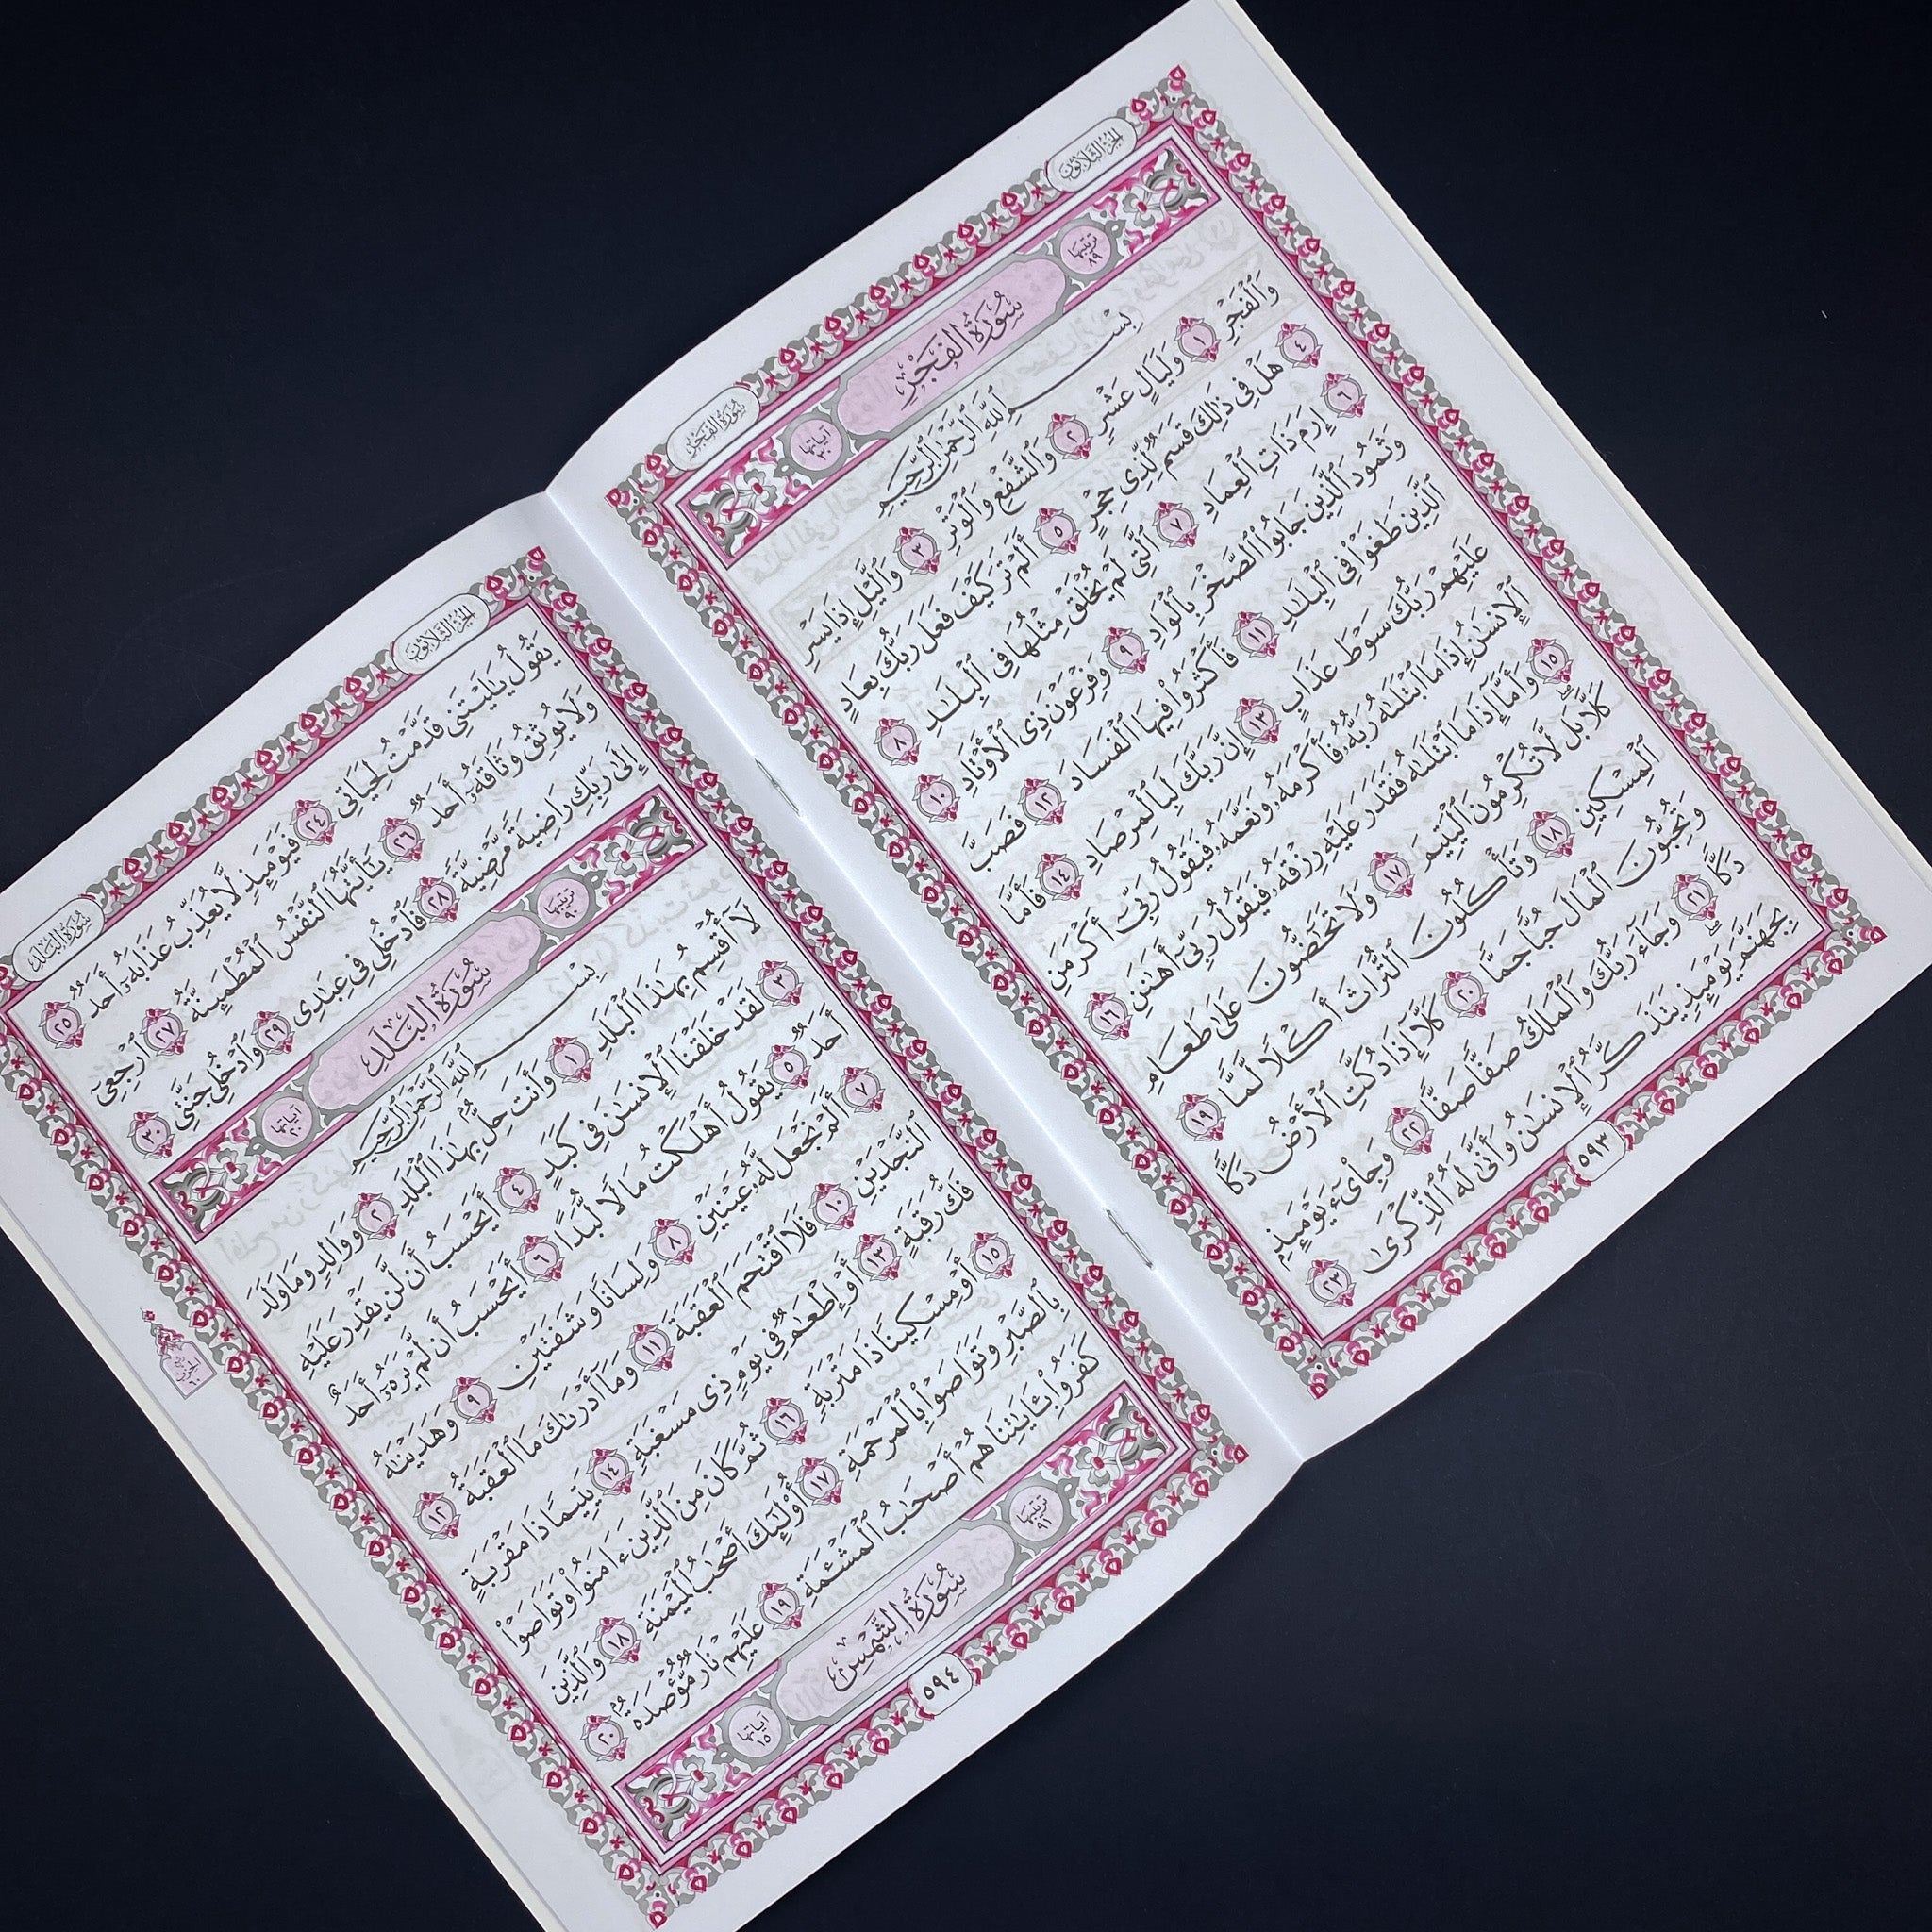 الجزء الثلاثون
سورة الفجر
ترتيبها ٨٩
سُورَةُ الفَجْرِ
آياتها ٣٠
بِسْمِ ٱللَّهِ ٱلرَّحْمَٰنِ ٱلرَّحِيمِ
وَٱلْفَجْرِ ١ وَلَيَالٍ عَشْرٍ ٢ وَٱلشَّفْعِ وَٱلْوَتْرِ ٣ وَٱلَّيْلِ إِذَا يَسْرِ
٤ هَلْ فِى ذَٰلِكَ قَسَمٌ لِّذِى حِجْرٍ ٥ أَلَمْ تَرَ كَيْفَ فَعَلَ رَبُّكَ بِعَادٍ
٦ إِرَمَ ذَاتِ ٱلْعِمَادِ ٧ ٱلَّتِى لَمْ يُخْلَقْ مِثْلُهَا فِى ٱلْبِلَٰدِ ٨
وَثَمُودَ ٱلَّذِينَ جَابُوا۟ ٱلصَّخْرَ بِٱلْوَادِ ٩ وَفِرْعَوْنَ ذِى ٱلْأَوْتَادِ ١٠
ٱلَّذِينَ طَغَوْا۟ فِى ٱلْبِلَٰدِ ١١ فَأَكْثَرُوا۟ فِيهَا ٱلْفَسَادَ ١٢ فَصَبَّ
عَلَيْهِمْ رَبُّكَ سَوْطَ عَذَابٍ ١٣ إِنَّ رَبَّكَ لَبِٱلْمِرْصَادِ ١٤ فَأَمَّا
ٱلْإِنسَٰنُ إِذَا مَا ٱبْتَلَىٰهُ رَبُّهُۥ فَأَكْرَمَهُۥ وَنَعَّمَهُۥ فَيَقُولُ رَبِّىٓ أَكْرَمَنِ
١٥ وَأَمَّآ إِذَا مَا ٱبْتَلَىٰهُ فَقَدَرَ عَلَيْهِ رِزْقَهُۥ فَيَقُولُ رَبِّىٓ أَهَٰنَنِ ١٦
كَلَّا بَل لَّا تُكْرِمُونَ ٱلْيَتِيمَ ١٧ وَلَا تَحَٰٓضُّونَ عَلَىٰ طَعَامِ
ٱلْمِسْكِينِ ١٨ وَتَأْكُلُونَ ٱلتُّرَاثَ أَكْلًا لَّمًّا ١٩
وَتُحِبُّونَ ٱلْمَالَ حُبًّا جَمًّا ٢٠ كَلَّآ إِذَا دُكَّتِ ٱلْأَرْضُ دَكًّا
دَكًّا ٢١ وَجَآءَ رَبُّكَ وَٱلْمَلَكُ صَفًّا صَفًّا ٢٢ وَجِا۟ىٓءَ يَوْمَئِذٍۭ
بِجَهَنَّمَ يَوْمَئِذٍ يَتَذَكَّرُ ٱلْإِنسَٰنُ وَأَنَّىٰ لَهُ ٱلذِّكْرَىٰ ٢٣
٥٩٣
الجزء الثلاثون
سورة البلد
يَقُولُ يَٰلَيْتَنِى قَدَّمْتُ لِحَيَاتِى ٢٤ فَيَوْمَئِذٍ لَّا يُعَذِّبُ عَذَابَهُۥٓ أَحَدٌ ٢٥
وَلَا يُوثِقُ وَثَاقَهُۥٓ أَحَدٌ ٢٦ يَٰٓأَيَّتُهَا ٱلنَّفْسُ ٱلْمُطْمَئِنَّةُ ٢٧ ٱرْجِعِىٓ
إِلَىٰ رَبِّكِ رَاضِيَةً مَّرْضِيَّةً ٢٨ فَٱدْخُلِى فِى عِبَٰدِى ٢٩ وَٱدْخُلِى جَنَّتِى ٣٠
ترتيبها ٩٠
سُورَةُ البَلَدِ
آياتها ٢٠
بِسْمِ ٱللَّهِ ٱلرَّحْمَٰنِ ٱلرَّحِيمِ
لَآ أُقْسِمُ بِهَٰذَا ٱلْبَلَدِ ١ وَأَنتَ حِلٌّۢ بِهَٰذَا ٱلْبَلَدِ ٢ وَوَالِدٍ وَمَا وَلَدَ
٣ لَقَدْ خَلَقْنَا ٱلْإِنسَٰنَ فِى كَبَدٍ ٤ أَيَحْسَبُ أَن لَّن يَقْدِرَ عَلَيْهِ
أَحَدٌ ٥ يَقُولُ أَهْلَكْتُ مَالًا لُّبَدًا ٦ أَيَحْسَبُ أَن لَّمْ يَرَهُۥٓ أَحَدٌ
٧ أَلَمْ نَجْعَل لَّهُۥ عَيْنَيْنِ ٨ وَلِسَانًا وَشَفَتَيْنِ ٩ وَهَدَيْنَٰهُ
ٱلنَّجْدَيْنِ ١٠ فَلَا ٱقْتَحَمَ ٱلْعَقَبَةَ ١١ وَمَآ أَدْرَىٰكَ مَا ٱلْعَقَبَةُ ١٢
فَكُّ رَقَبَةٍ ١٣ أَوْ إِطْعَٰمٌ فِى يَوْمٍ ذِى مَسْغَبَةٍ ١٤ يَتِيمًا ذَا مَقْرَبَةٍ
١٥ أَوْ مِسْكِينًا ذَا مَتْرَبَةٍ ١٦ ثُمَّ كَانَ مِنَ ٱلَّذِينَ ءَامَنُوا۟ وَتَوَاصَوْا۟
بِٱلصَّبْرِ وَتَوَاصَوْا۟ بِٱلْمَرْحَمَةِ ١٧ أُو۟لَٰٓئِكَ أَصْحَٰبُ ٱلْمَيْمَنَةِ ١٨ وَٱلَّذِينَ
كَفَرُوا۟ بِـَٔايَٰتِنَا هُمْ أَصْحَٰبُ ٱلْمَشْـَٔمَةِ ١٩ عَلَيْهِمْ نَارٌ مُّؤْصَدَةٌۢ ٢٠
ترتيبها ٩١
سُورَةُ الشَّمْسِ
آياتها ١٥
٥٩٤
الحزب ٦٠